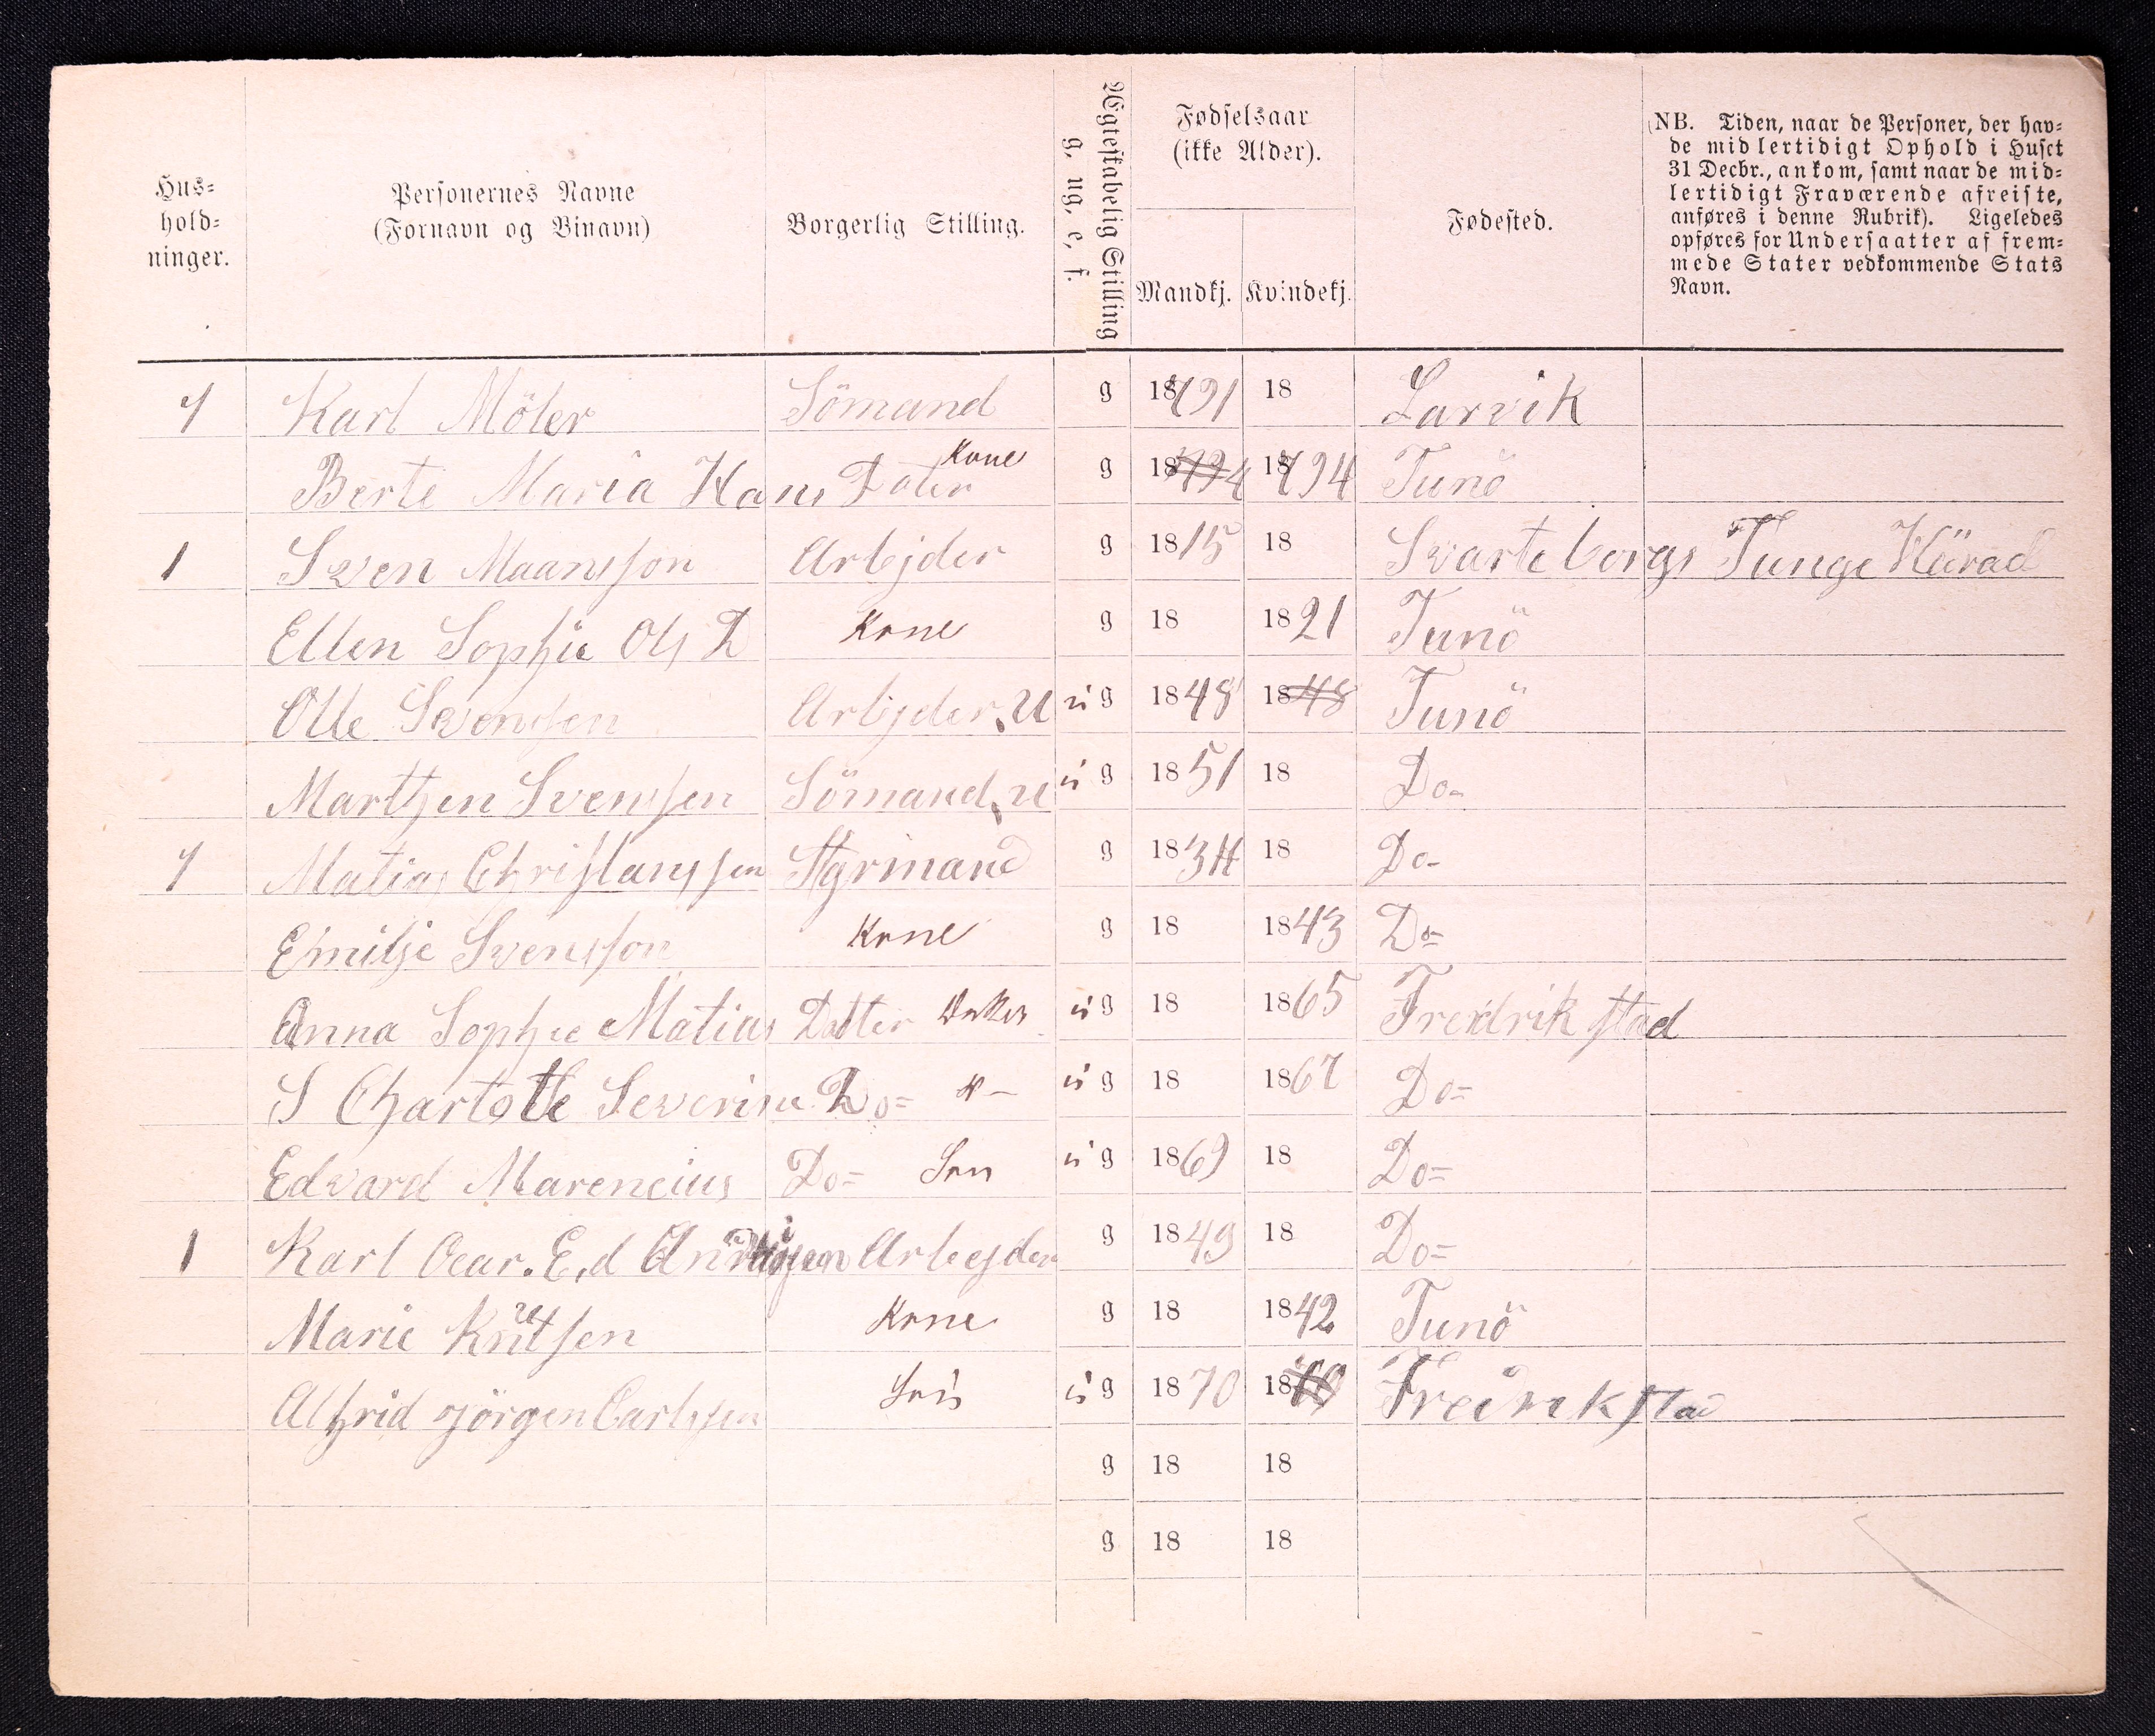 Hus-
hold-
ninger.
Personernes Navne
(Fornavn og Binavn)
Borgerlig Stilling.
Ægteskabelig Stilling
g, ug, e, f.
Fødselsaar
(ikke Alder).
Mandkj. Kvindekj.
Fødested.
NB. Tiden, naar de Personer, der hav-
de midlertidigt Ophold i Huset
31 Decbr., ankom, samt naar de mid-
lertidigt Fraværende afreiste,
anføres i denne Rubrik). Ligeledes
opføres for Undersaatter af frem-
mede Stater vedkommende Stats
Navn.
1 Karl Möler Sömand g 1791 18 Larvik
Berte Maria Hans Doter Kone g 18 1794 Tunö
1 Sven Maansson Arbejder g 1815 18 Svarteborgs Tunge Härad
Ellen Sophie Ols D Kone g 18 1821 Tunö
Olle Svensen Arbjder, U ug 1848 1848 Tunö
Marthen Svensen Sömand, u ug 1851 18 Do-
1 Matias Christianssen Styrmand g 1834 18 Do-
Emilje Svensson Kone g 18 1843 Do-
Anna Sophie Matias Datter Datter ug 18 1865 Fredrikstad
S Charlotte Severine Do= ug 18 1867 Do=
Edvard Marencius Do= Søn ug 1869 18 Do=
1 Karl Ocar. Ed Arbejder g 1849 18 Do=
Marie Knutsen Kone g 18 1842 Tunö
Alfrid Jörgen Carlssen Søn ug 1870 18 Fredrikstad
g 18 18
g 18 18